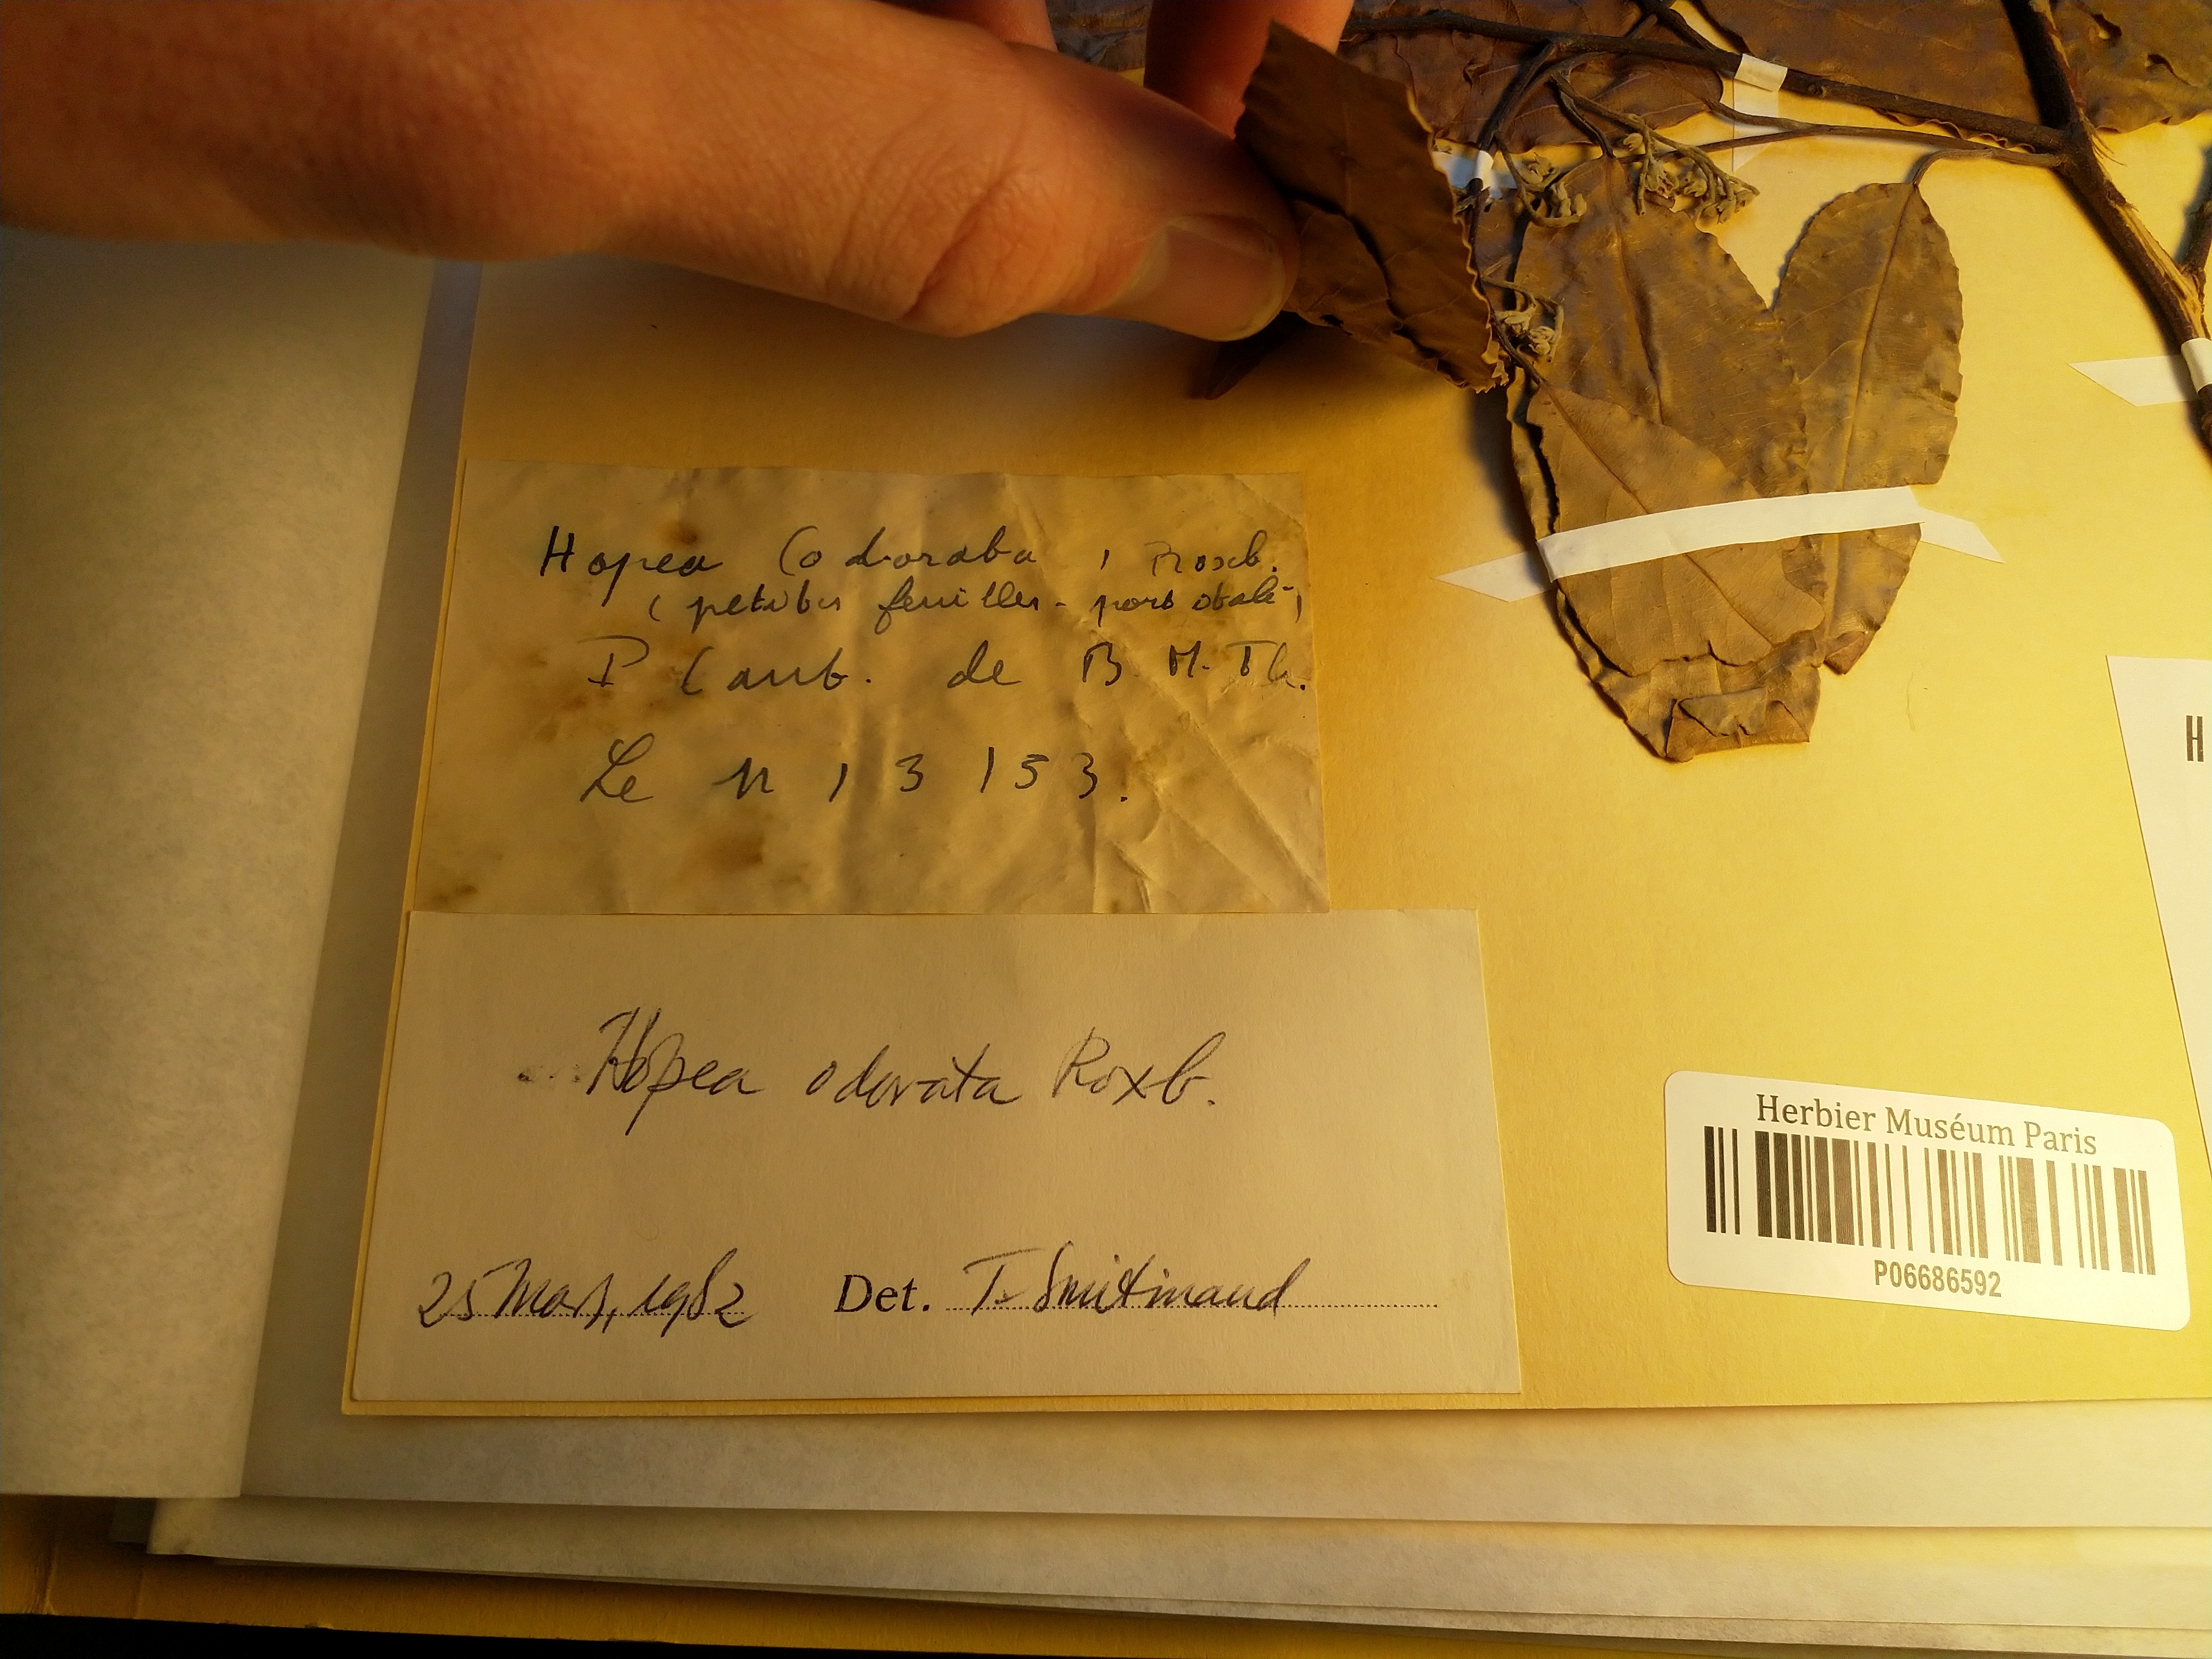 Hopea Codoraba, Roxb.
(petites feuilles - port étalé)
P Cant. de B M. Th.
Le n 13153.
Hopea odorata Roxb.
25 Mar, 1982 Det. T. Smitinand
Herbier Muséum Paris
P06686592
H